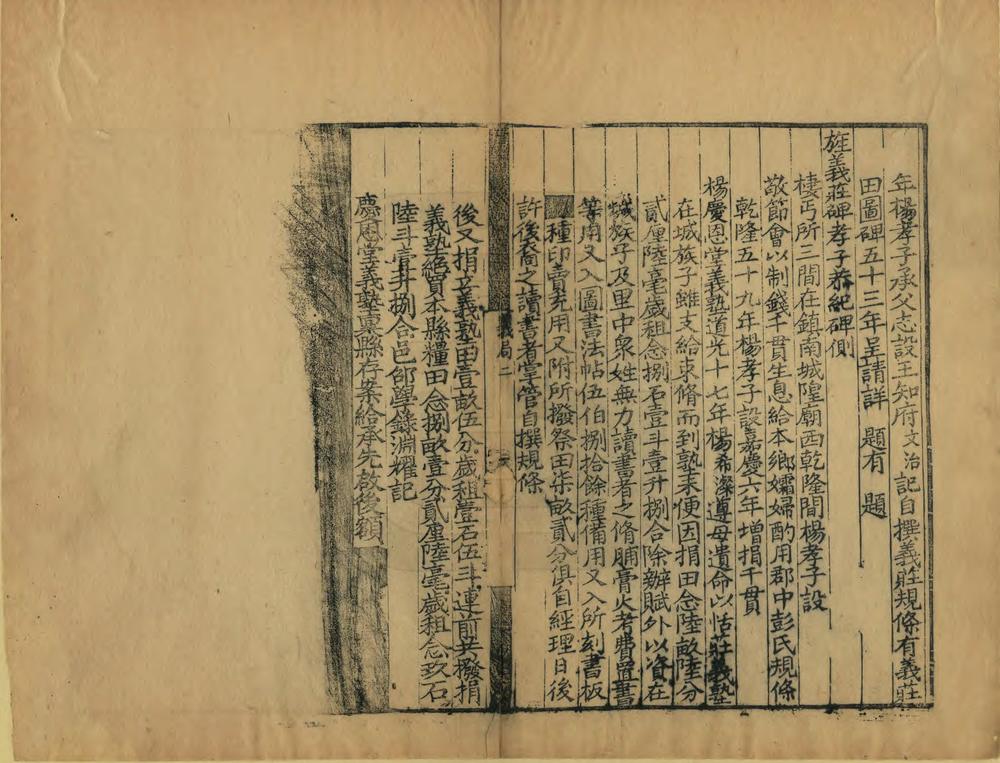 年楊孝子承父志設王知府文治記自撰義莊規條有義莊
田圖碑五十三年呈請詳 題有 題
旌義莊碑孝子恭紀碑側
棲丐所三間在鎮南城隍廟西乾隆間楊孝子設
敬節會以制錢千貫生息給本鄉孀婦酌用郡中彭氏規條
乾隆五十九年楊孝子設嘉慶六年增捐千貫
楊慶恩堂義塾道光十七年楊希濚遵母遺命以怙莊義塾
在城族子雖支給束脩而到塾未便因捐田念陸畝陸分
貳厘陸毫歲租念捌石壹斗壹升捌合除辦賦外以資在
城族子及里中衆姓無力讀書者之脩脯膏火考費置書
等用又入圖書法帖伍伯捌拾餘種備用又入所刻書板
種印賣充用又附所撥祭田柒畝貳分俱自經理日後
許後裔之讀書者掌管自撰規條
義局 二
後又捐立義塾田壹畝伍分歲租壹石伍斗連前共撥捐
義塾絕買本縣糧田念捌畝壹分貳厘陸毫歲租念玖石
陸斗壹升捌合邑邰學錄淵燿記
慶恩堂義塾稟縣存案給承先啟後額